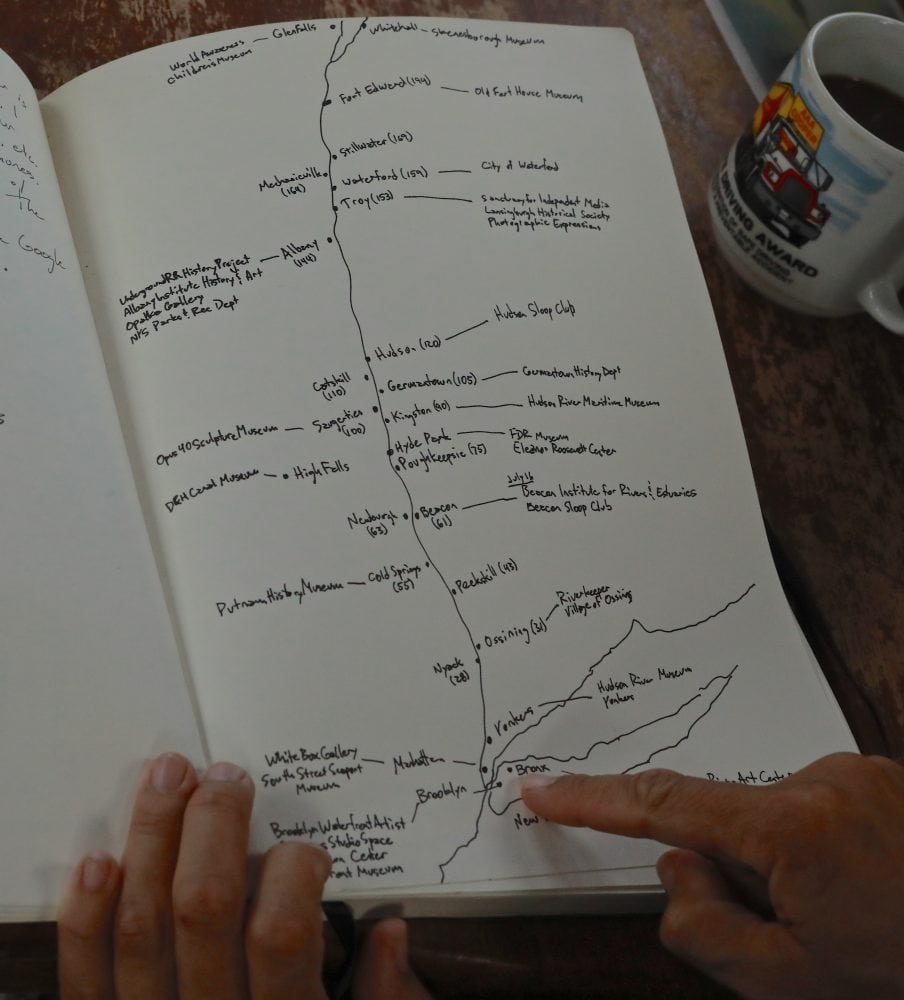 Glen Falls
World Awareness
Children's Museum
Whitehall
Skenesborough Museum
Fort Edward (194)
Old Fort House Museum
Stillwater (169)
Mechanicville
(164)
Waterford (159)
City of Waterford
Troy (153)
Sanctuary for Independet Media
Lansingburgh Historical Society
Photographic Expressions
Albany
(144)
Undergound RR History Project
Albany Institute History & Art
Opalka Gallery
NYS Parks & Rec Dept
Hudson (120)
Hudson Sloop Club
Catskill
(110)
Germantown (105)
Germantown History Dept
Saugerties
(100)
Opus 40 Sculpture Museum
Kingston (90)
Hudson River Maritime Museum
Hyde Park
FDR Museum
Eleanor Roosevelt Center
Poughkeepsie (75)
High Falls
D&H Canal Museum
Newburgh
(63)
Beacon
(61)
July 16
Beacon Institute for Rivers & Estuaries
Beacon Sloop Club
Cold Springs
(55)
Putnam History Museum
Peekskill (43)
Ossining (31)
Riverkeeper
Village of Ossining
Nyack
(28)
Yonkers
Hudson River Museum
Yonkers
Manhatten
White Box Gallery
South Street Seaport
Museum
Bronx
Art Center
Brooklyn
Brooklyn Waterfront Artist
Studio Space
Center
Museum
New
etc.
of the
Google
DRIVING AWARD